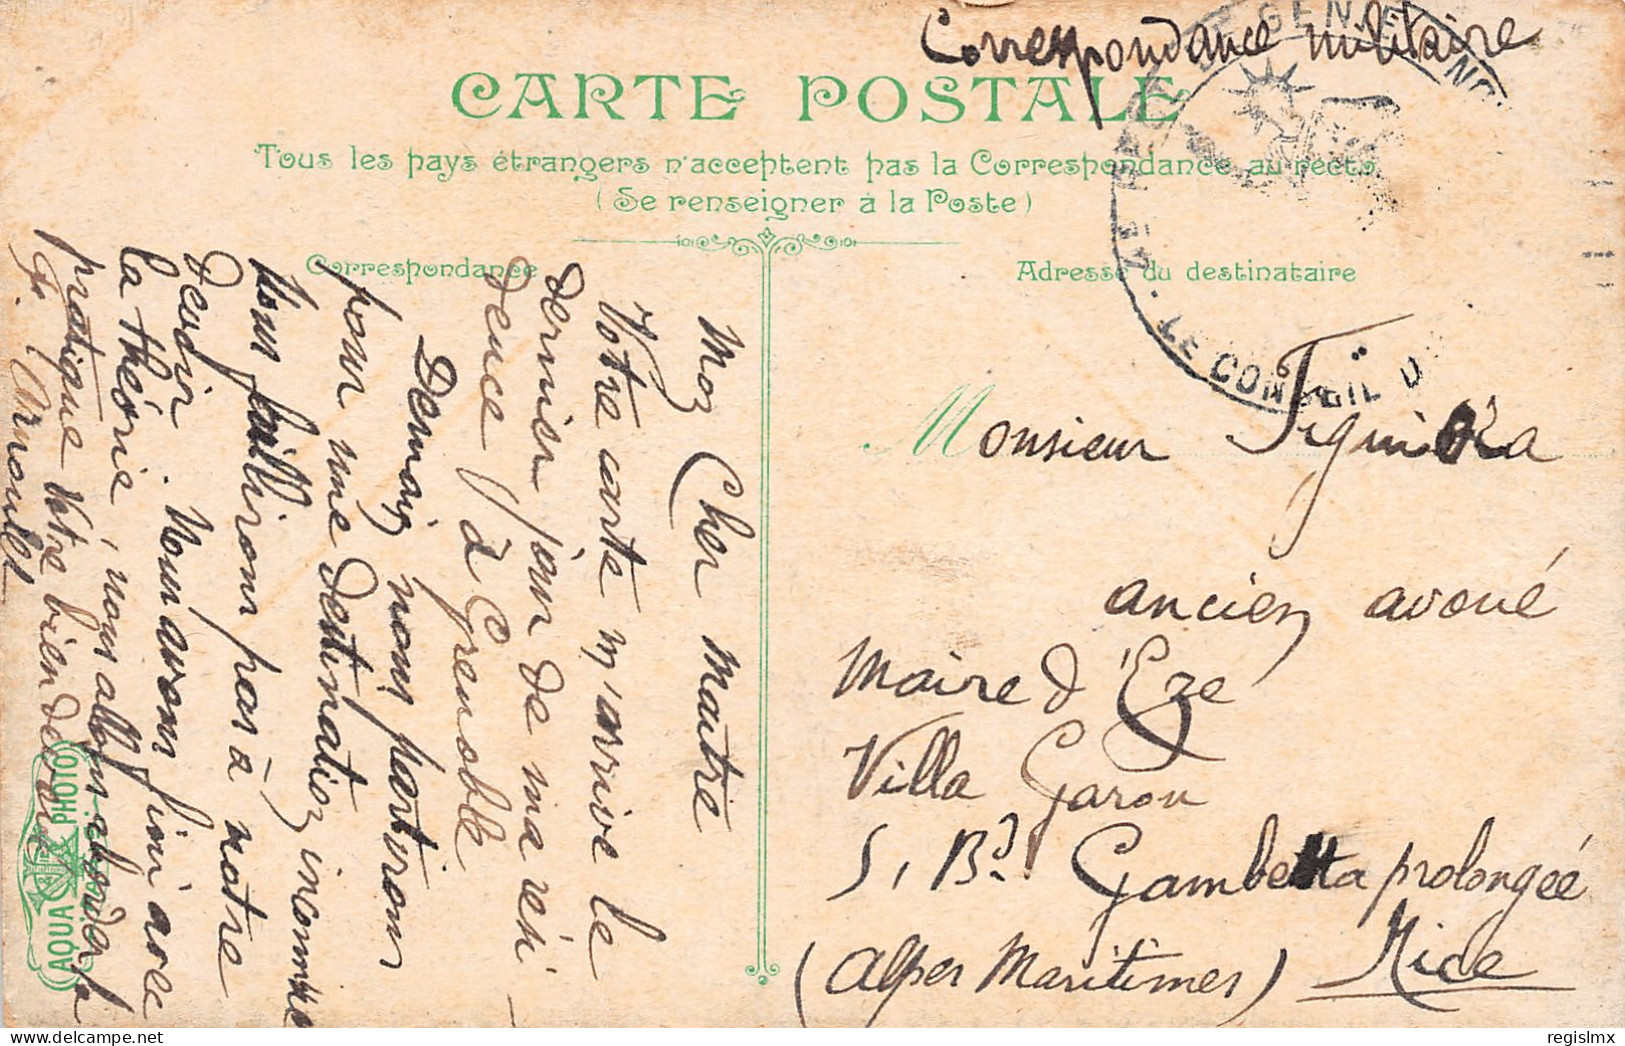 Correspondance militaire
CARTE POSTALE
Tous les pays étrangers n'acceptent pas la Correspondance au recto
(Se renseigner à la Poste)
Correspondance
Adresse du destinataire
Mon Cher Maitre
Votre carte m'arrive le
dernier jour de ma rési-
dence à Grenoble
Demain nous partirons
pour une destination inconnue
Nous faillirons pas à notre
devoir. Nous avons fini avec
la théorie, nous allons aborder la
pratique Votre bien dévoué
Arnoulet
Monsieur
ancien avoué
Maire d'Eze
Villa Garon
5, Bd Gambetta prolongée
(Alpes Maritimes) Nice
GENIE
LE CONSEIL D
AQUA PHOTO
regislmx